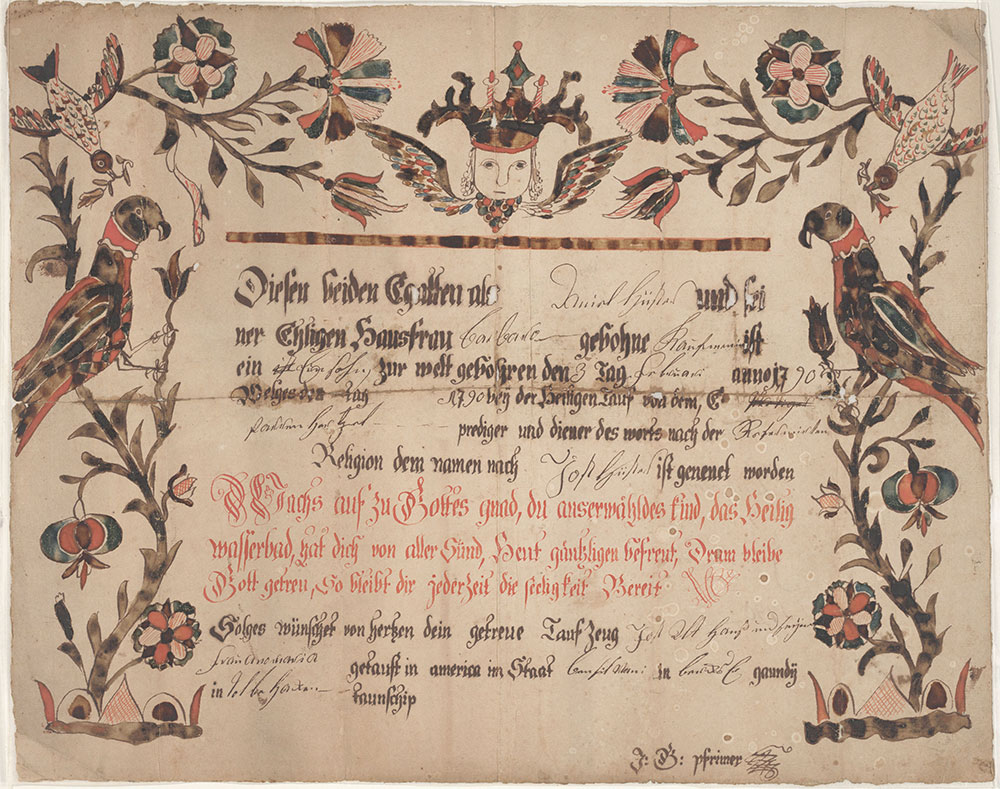 Diesen beiden Egatten als Daniel Hüster und sei
ner Ehligen Hausfrau barbara gebohne Kaufmenin ist
ein Sohn zur welt gebohren den 3 Tag Februari anno 1790
Welges den Tag 1790 bey der Heiligen Tauf von dem, E
prediger und diener des worts nach der Reformirten
Religion dem namen nach Jost Hüster ist genenet worden
Wachs auf zu Gottes gnad, du auserwähldes kind, das Heilig
wasserbad, hat dich von aller Sünd, Heut gäntzligen befreut, Dram bleibe
Gott getreu, So bleibt dir jederzeit die seeligkeit Bereit
Solges wünschet von hertzen dein getreue Tauf Zeug Jost Alt Hauß und seine
Frau Anamaria getauft in america im Staat in gaundy
in taunschip
J: G: pfrimer